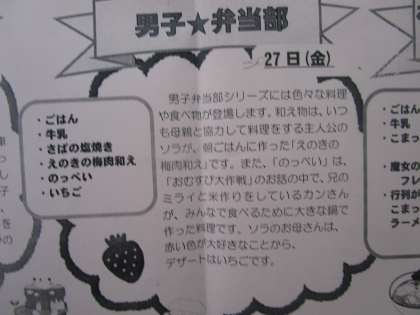 男子★弁当部
27日(金)
・ごはん
・牛乳
・さばの塩焼き
・えのきの梅肉和え
・のっぺい
・いちご
男子弁当部シリーズには色々な料理
や食べ物が登場します。和え物は、いつ
も母親と協力して料理をする主人公の
ソラが、朝ごはんに作った「えのきの
梅肉和え」です。また、「のっぺい」は、
「おむすび大作戦」のお話の中で、兄の
ミライと米作りをしているカンさん
が、みんなで食べるために大きな鍋で
作った料理です。ソラのお母さんは、
赤い色が大好きなことから、
デザートはいちごです。
・ごはん
・牛乳
・こまっ
・魔女の
フレ
・行列が
こまっ
ラーメ